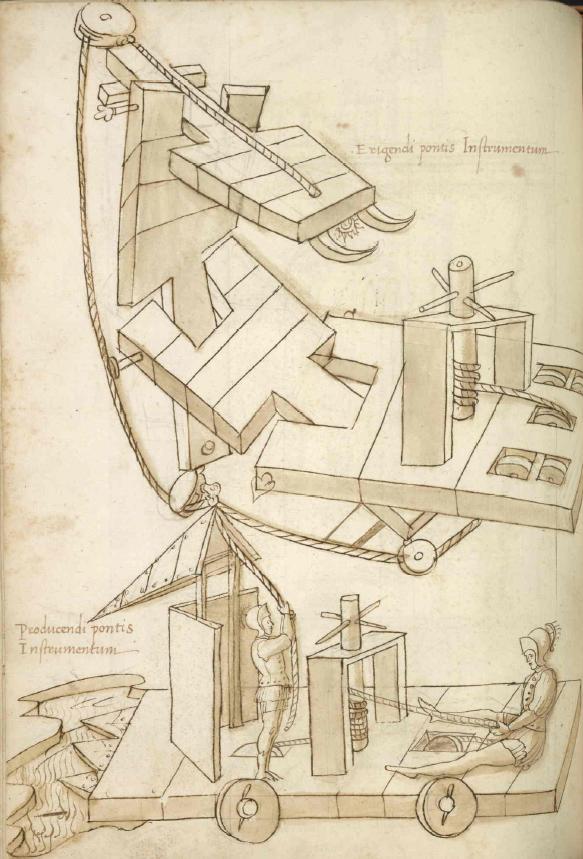 Erigendi pontis Instrumentum
Producendi pontis
Instrumentum